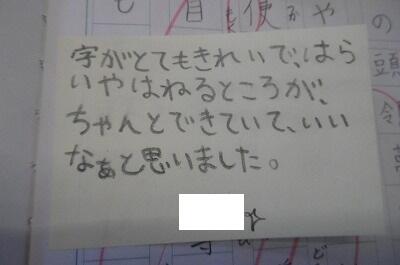 字がとてもきれいで、はら
いやはねるところが、
ちゃんとできていて、いい
なぁと思いました。
☆
も
自
使
かや
の
頭